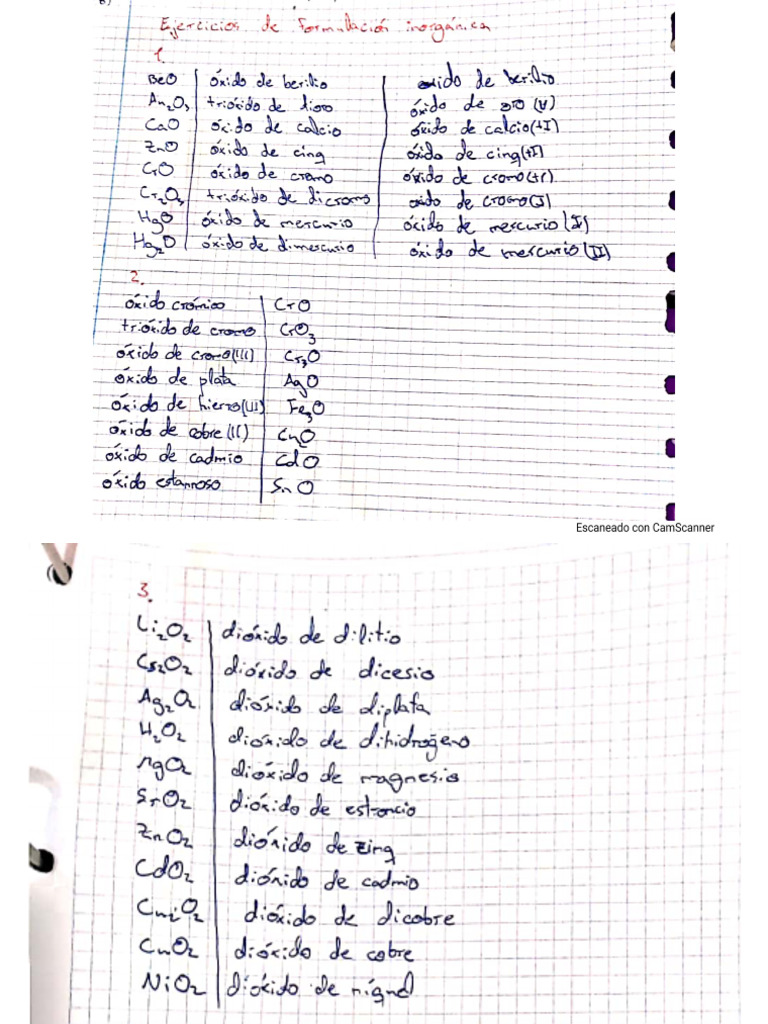 Ejercicios de Formulación inorgánica
1.
BeO óxido de berilio oxido de berilio
Au2O3 trióxido de dioro óxido de oro (V)
CaO óxido de calcio óxido de calcio (+I)
ZnO óxido de cinq óxido de cinq (+I)
CrO óxido de cromo óxido de cromo (+I)
Cr2O3 trióxido de dicromo oxido de cromo (I)
HgO óxido de mercurio óxido de mercurio (I)
Hg2O óxido de dimercurio óxido de mercurio (II)
2.
óxido crómico CrO
trióxido de cromo CrO3
óxido de cromo (III) Cr3O
óxido de plata AgO
óxido de hierro (III) Fe3O
óxido de cobre (II) Cu2O
óxido de cadmio CdO
óxido estannoso SnO
Escaneado con CamScanner
3.
Li2O2 dióxido de dilitio
Cs2O2 dióxido de dicesio
Ag2O2 dióxido de diplata
H2O2 dióxido de dihidrógeno
MgO2 dióxido de magnesio
SrO2 dióxido de estroncio
ZnO2 dióxido de zinq
CdO2 dióxido de cadmio
Cu2O2 dióxido de dicobre
CuO2 dióxido de cobre
NiO2 dióxido de níquel